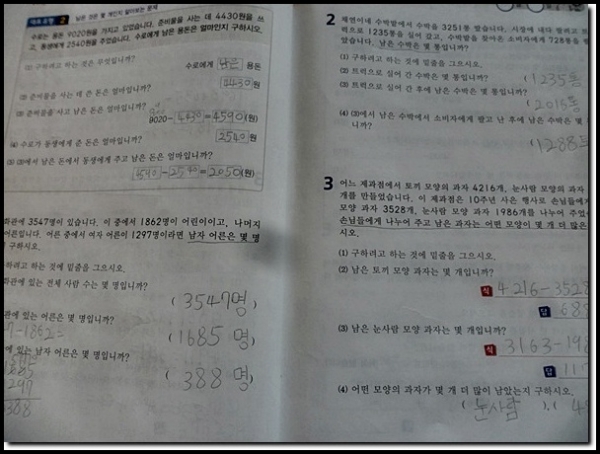 대표 유형 2 남은 것은 몇 개인지 알아보는 문제
수로는 용돈 9020원을 가지고 있었습니다. 준비물을 사는 데 4430원을 쓰
고, 동생에게 2540원을 주었습니다. 수로에게 남은 용돈은 얼마인지 구하시오.
(1) 구하려고 하는 것은 무엇입니까?
수로에게 남은 용돈
(2) 준비물을 사는 데 쓴 돈은 얼마입니까?
4430원
(3) 준비물을 사고 남은 돈은 얼마입니까?
9020-4430=4590(원)
(4) 수로가 동생에게 준 돈은 얼마입니까?
2540원
(5) (3)에서 남은 돈에서 동생에게 주고 남은 돈은 얼마입니까?
4590-2540=2050(원)
화관에 3547명이 있습니다. 이 중에서 1862명이 어린이이고, 나머지
어른입니다. 어른 중에서 여자 어른이 1297명이라면 남자 어른은 몇 명
구하시오.
구하려고 하는 것에 밑줄을 그으시오.
화관에 있는 전체 사람 수는 몇 명입니까?
(3547명)
관에 있는 어른은 몇 명입니까?
7-1862=
(1685 명)
에 있는 남자 어른은 몇 명입니까?
(388 명)
297
388
2 채현이네 수박밭에서 수박을 3251통 땄습니다. 시장에 내다 팔려고 트
럭으로 1235통을 실어 갔고, 수박밭을 찾아온 소비자에게 728통을 팔
았습니다. 남은 수박은 몇 통입니까?
(1) 구하려고 하는 것에 밑줄을 그으시오.
(2) 트럭으로 실어 간 수박은 몇 통입니까?
(1235통
(3) 트럭으로 실어 간 후에 남은 수박은 몇 통입니까?
(2015통
(4) (3)에서 남은 수박에서 소비자에게 팔고 난 후에 남은 수박은 몇
니까?
(1288통
3 어느 제과점에서 토끼 모양의 과자 4216개, 눈사람 모양의 과자
개를 만들었습니다. 이 제과점은 10주년 사은 행사로 손님들에게
모양 과자 3528개, 눈사람 모양 과자 1986개를 나누어 주었
손님들에게 나누어 주고 남은 과자는 어떤 모양이 몇 개 더 많은
시오.
(1) 구하려고 하는 것에 밑줄을 그으시오.
(2) 남은 토끼 모양 과자는 몇 개입니까?
식 4216-3528
답 688
(3) 남은 눈사람 모양 과자는 몇 개입니까?
식 3163-198
답 117
(4) 어떤 모양의 과자가 몇 개 더 많이 남았는지 구하시오.
(눈사람),(4